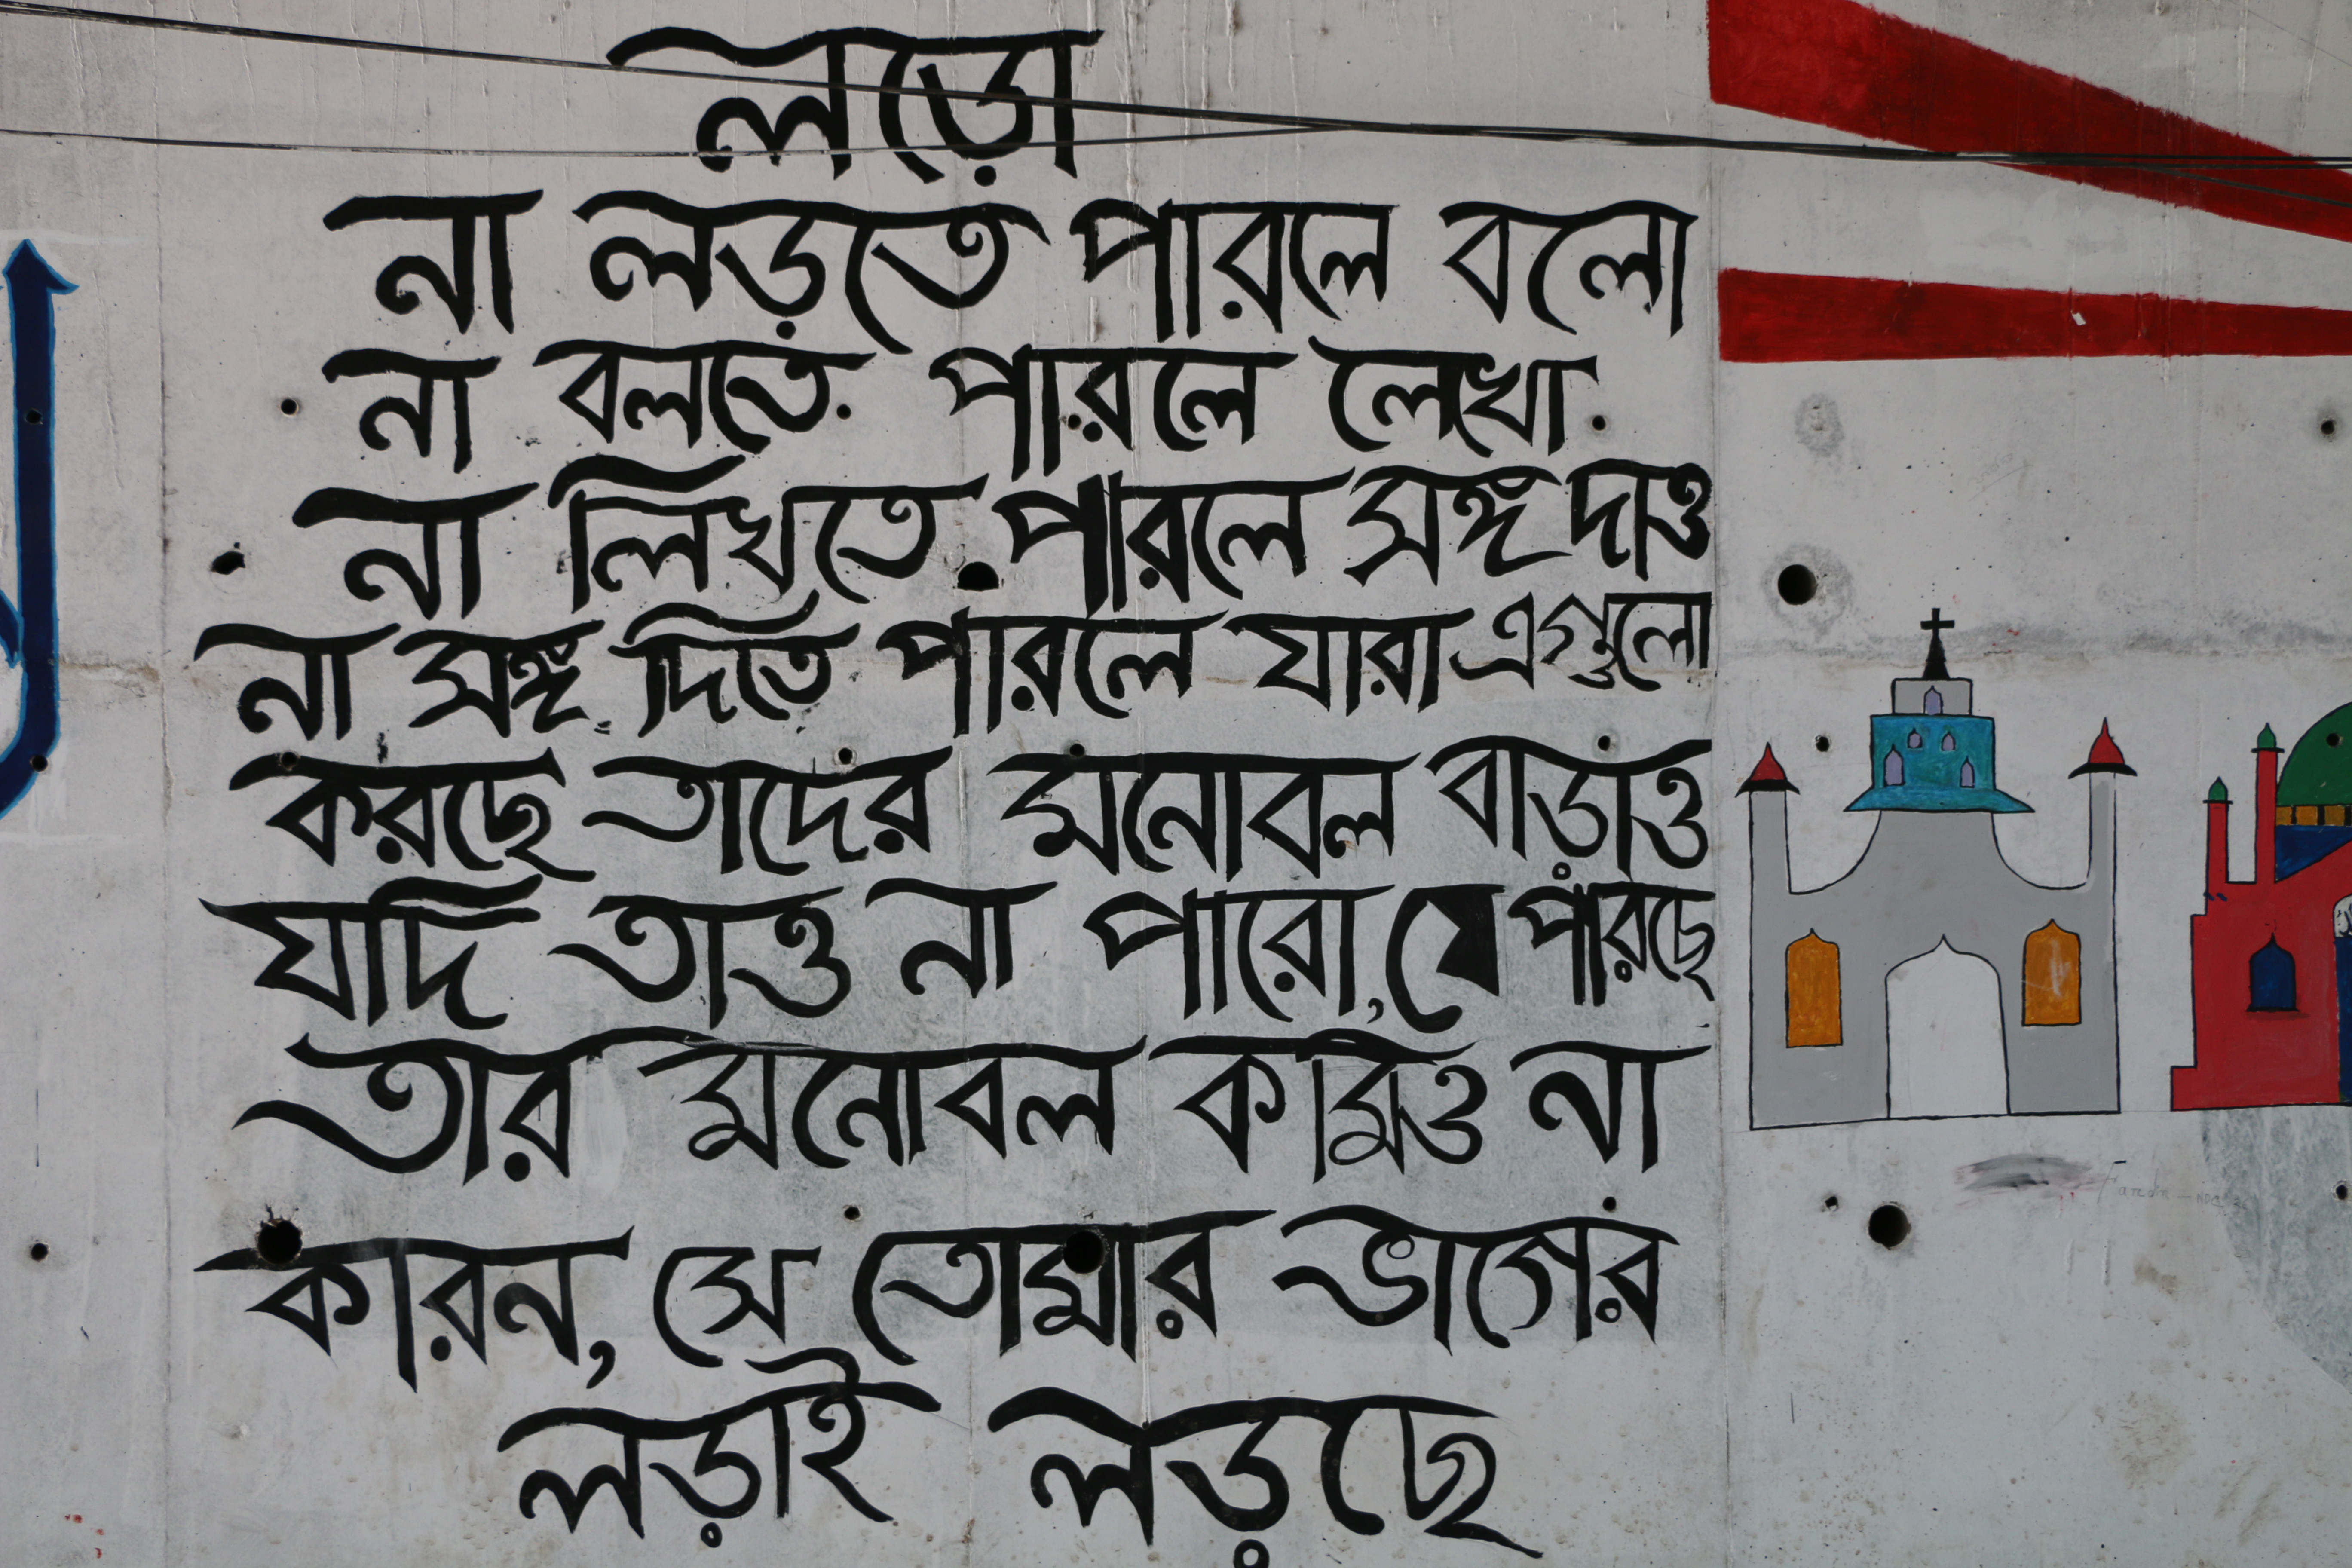 লড়ো
না লড়তে পারলে বলো
না বলতে পারলে লেখো
না লিখতে পারলে সঙ্গ দাও
না সঙ্গ দিতে পারলে যারা এগুলো
করছে তাদের মনোবল বাড়াও
যদি তাও না পারো, যে পারছে
তার মনোবল কমিও না
কারন, সে তোমার ভাগের
লড়াই লড়ছে